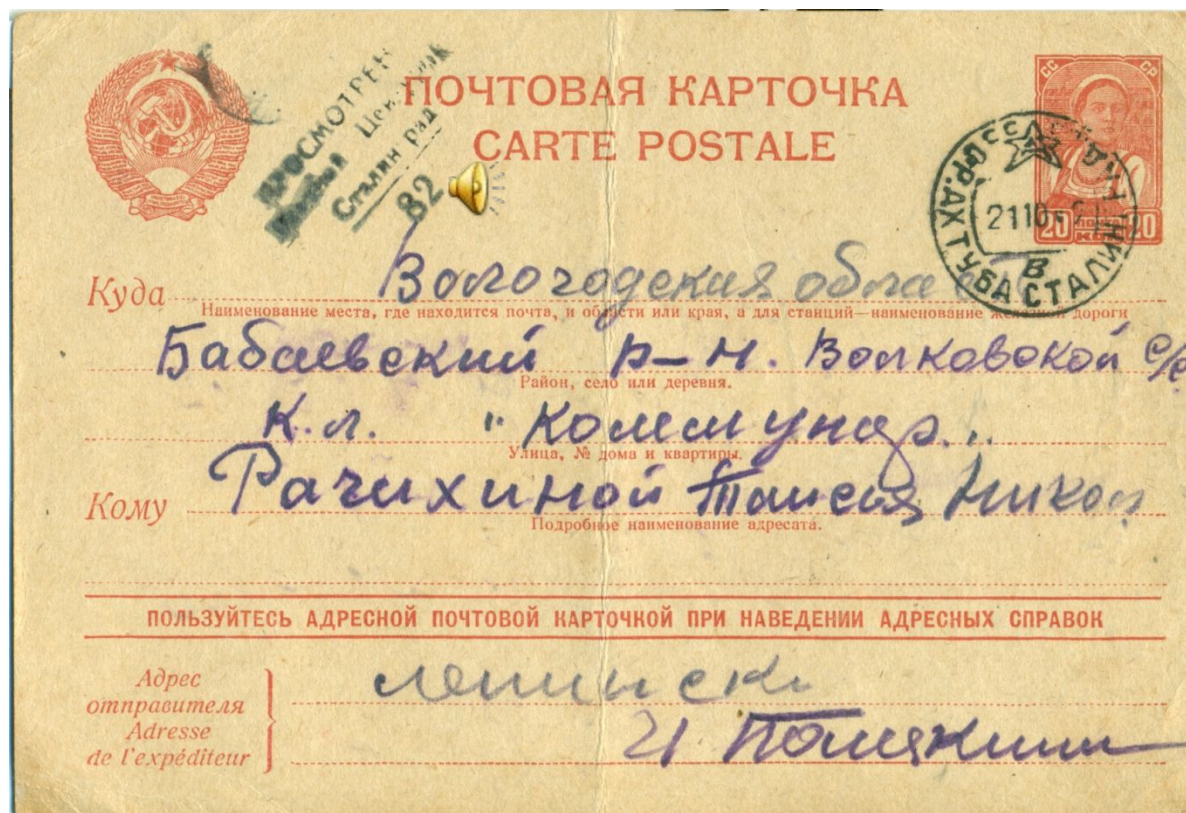 ПОЧТОВАЯ КАРТОЧКА
CARTE POSTALE
ПРОСМОТРЕНО
Военной Цензурой
Сталинград
82
СС СР
20 ПОЧТА 20
КОП
СР.АХТУБА СТАЛИН
2110
В
Куда Вологодская область
Наименование места, где находится почта, и области или края, а для станций—наименование железной дороги
Бабаевский р-н. Волковской с/с
Район, село или деревня.
К.л. "Коммунар."
Улица, № дома и квартиры.
Кому Рачихиной Таисия Никол
Подробное наименование адресата.
ПОЛЬЗУЙТЕСЬ АДРЕСНОЙ ПОЧТОВОЙ КАРТОЧКОЙ ПРИ НАВЕДЕНИИ АДРЕСНЫХ СПРАВОК
Адрес
отправителя
Adresse
de l'expéditeur
Ленинск